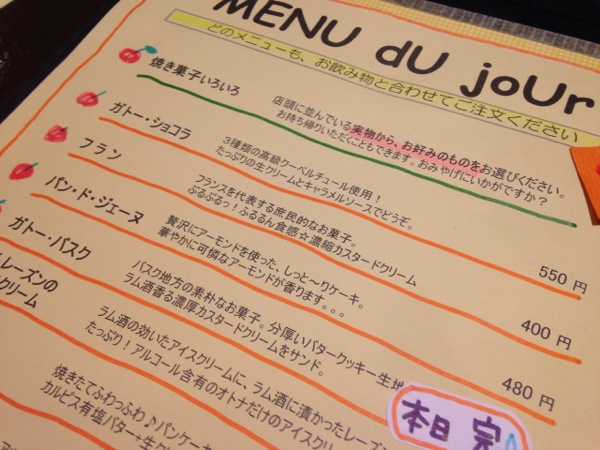 MENU dU joUr
どのメニューも、お飲み物と合わせてご注文ください
焼き菓子いろいろ
店頭に並んでいる実物から、お好みのものをお選びください。
お持ち帰りいただくこともできます。おみやげにいかがですか？
ガトー・ショコラ
3種類の高級クーベルチュール使用！
たっぷりの生クリームとキャラメルソースでどうぞ。
550 円
フラン
フランスを代表する庶民的なお菓子。
ぷるぷるっ！ふるるん食感☆濃縮カスタードクリーム
400 円
パン・ド・ジェーヌ
贅沢にアーモンドを使った、しっと～りケーキ。
華やかに可憐なアーモンドが香ります。。。
480 円
ガトー・バスク
バスク地方の素朴なお菓子。分厚いバタークッキー生地
ラム酒香る濃厚カスタードクリームをサンド。
本日 完
レーズンの
クリーム
ラム酒の効いたアイスクリームに、ラム酒に漬かったレーズン
たっぷり！アルコール含有のオトナだけのアイスクリ
焼きたてふわっふわ♪パンケーキ
カルピス有塩バター+生ク